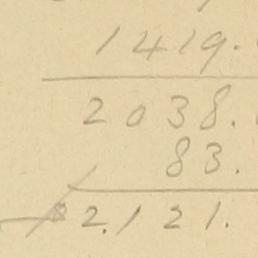 1419.
2038.
83.
$2.121.